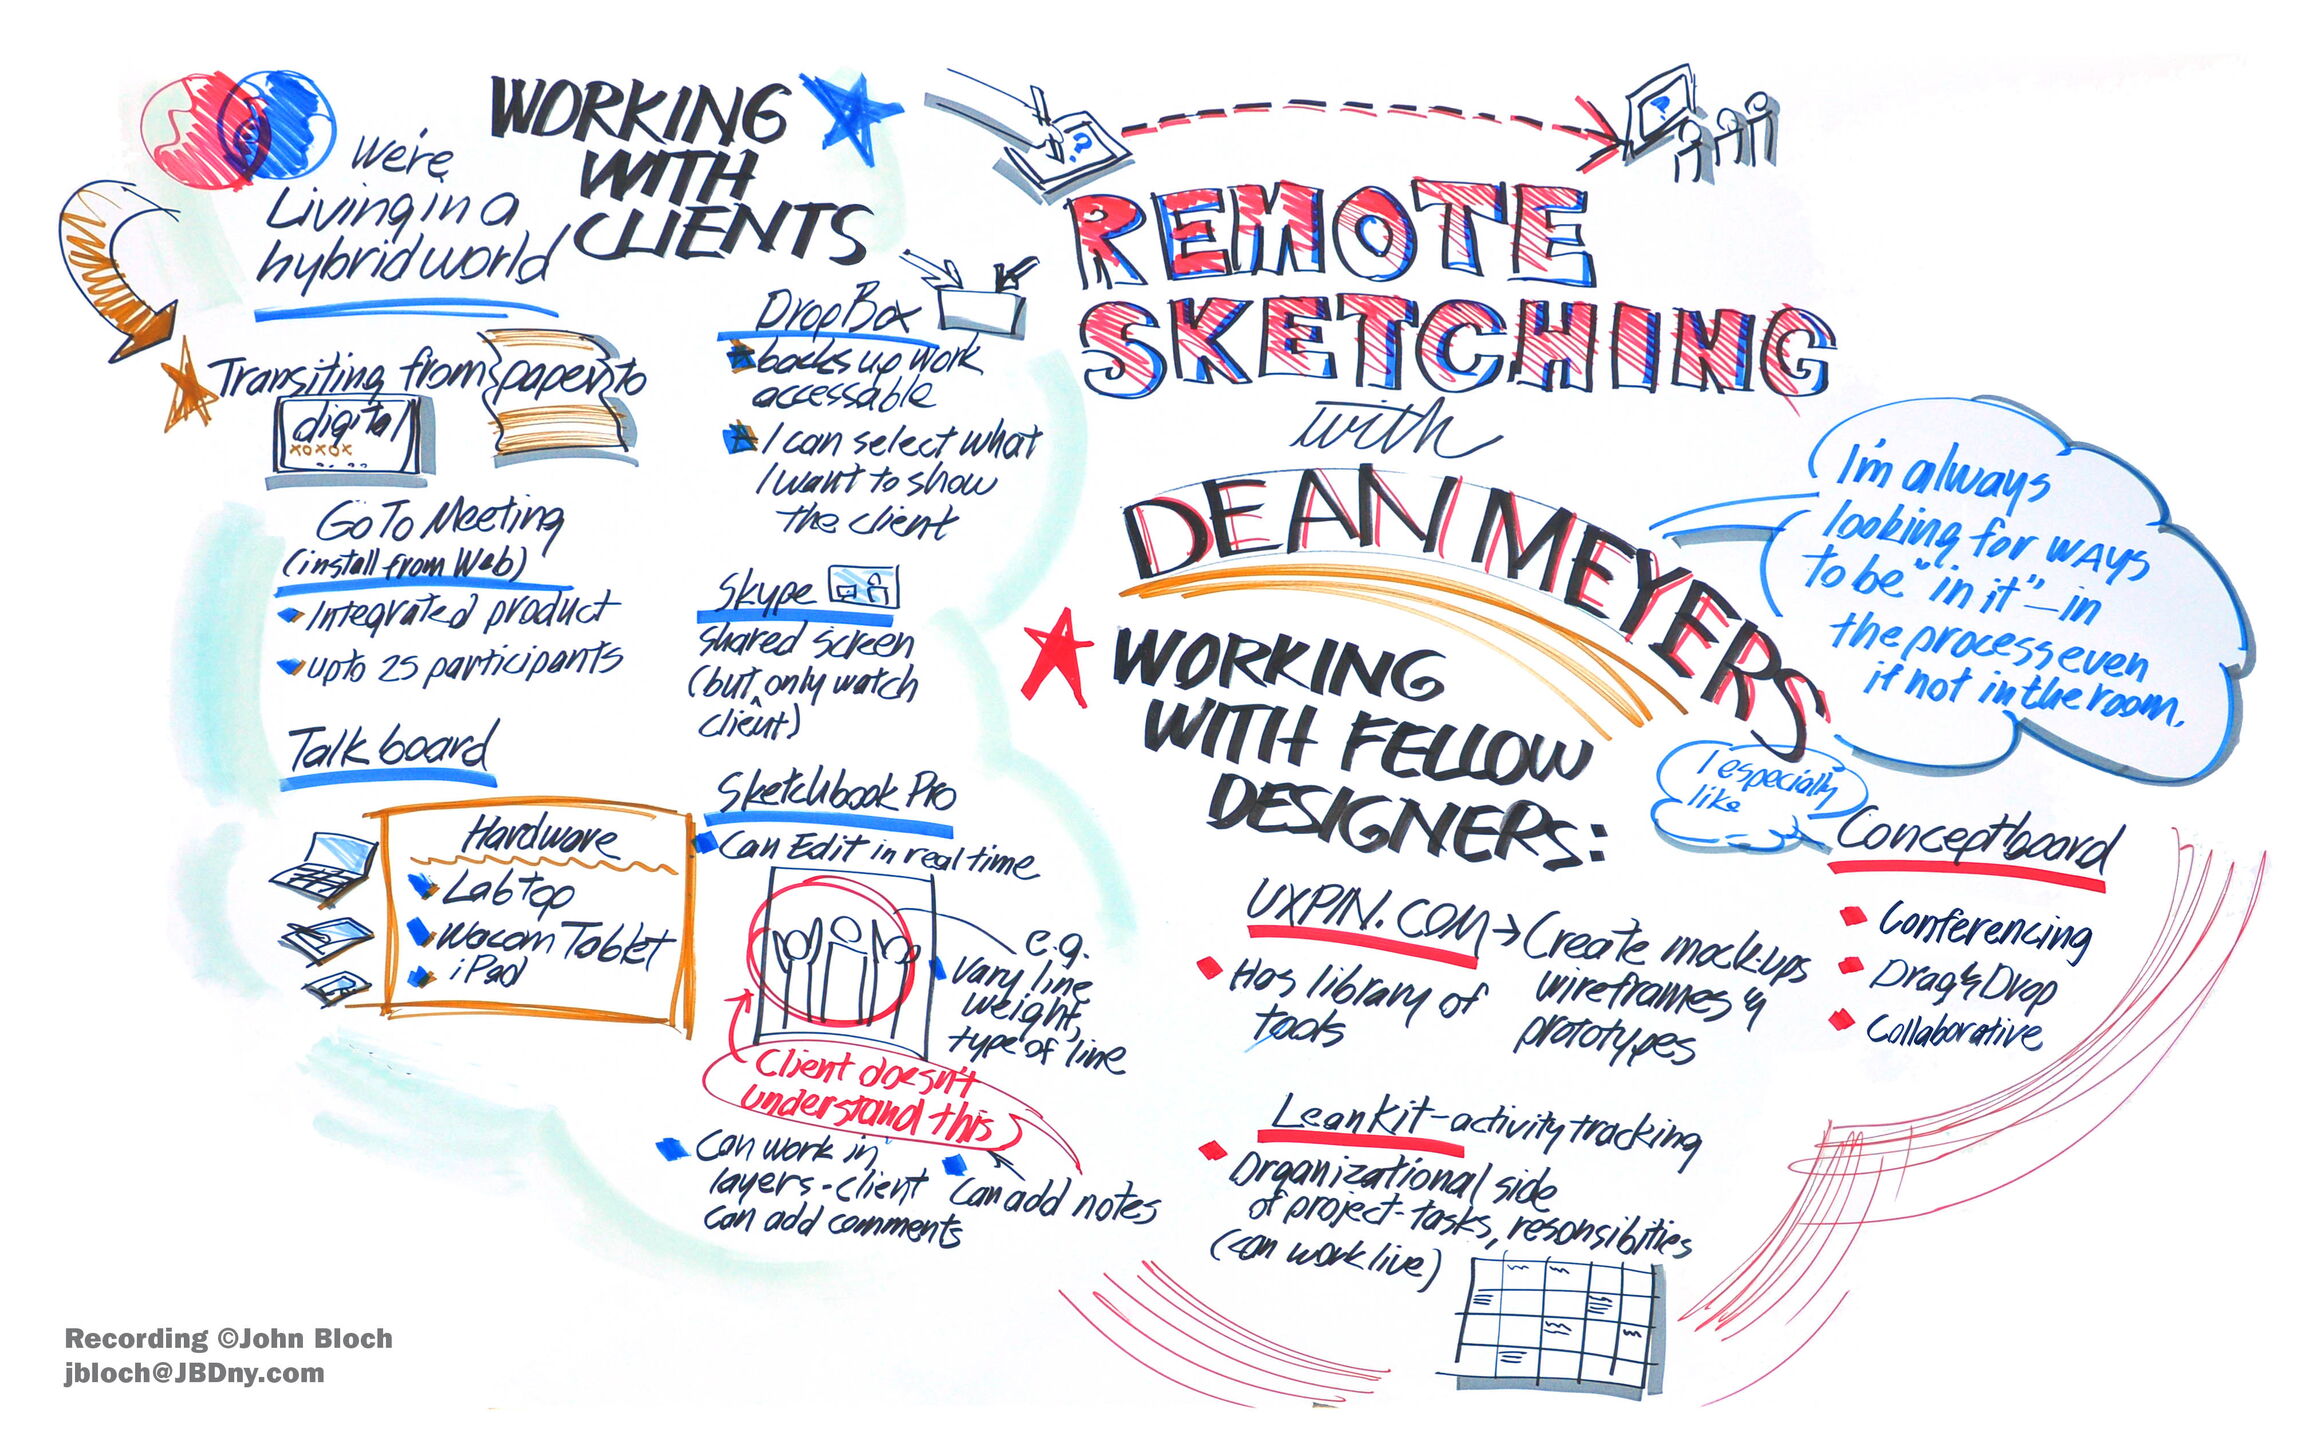 WORKING
WITH
CLIENTS
We're
Living in a
hybrid world
Transiting from paper to
digital
xoxox
GoTo Meeting
(install from Web)
Integrated product
upto 25 participants
Talk board
Hardware
Labtop
Wacom Tablet
iPad
DropBox
backs up work
accessable
I can select what
I want to show
the client
Skype
shared screen
(but only watch
client)
Sketchbook Pro
Can Edit in real time
e.g.
Vary line
weight,
type of line
Client doesn't
understand this
Can work in
layers-client
can add comments
Can add notes
?
?
REMOTE
SKETCHING
with
DEAN MEYERS
I'm always
looking for WAYS
to be "in it"—in
the process even
if not in the room.
WORKING
WITH FELLOW
DESIGNERS:
UXPIN.COM → Create mock-ups
wireframes &
prototypes
Has library of
tools
I especially
like
Conceptboard
Conferencing
Drag & Drop
Collaborative
LeanKit-activity tracking
Organizational side
of project-tasks, resonsibities
(can work live)
Recording ©John Bloch
jbloch@JBDny.com